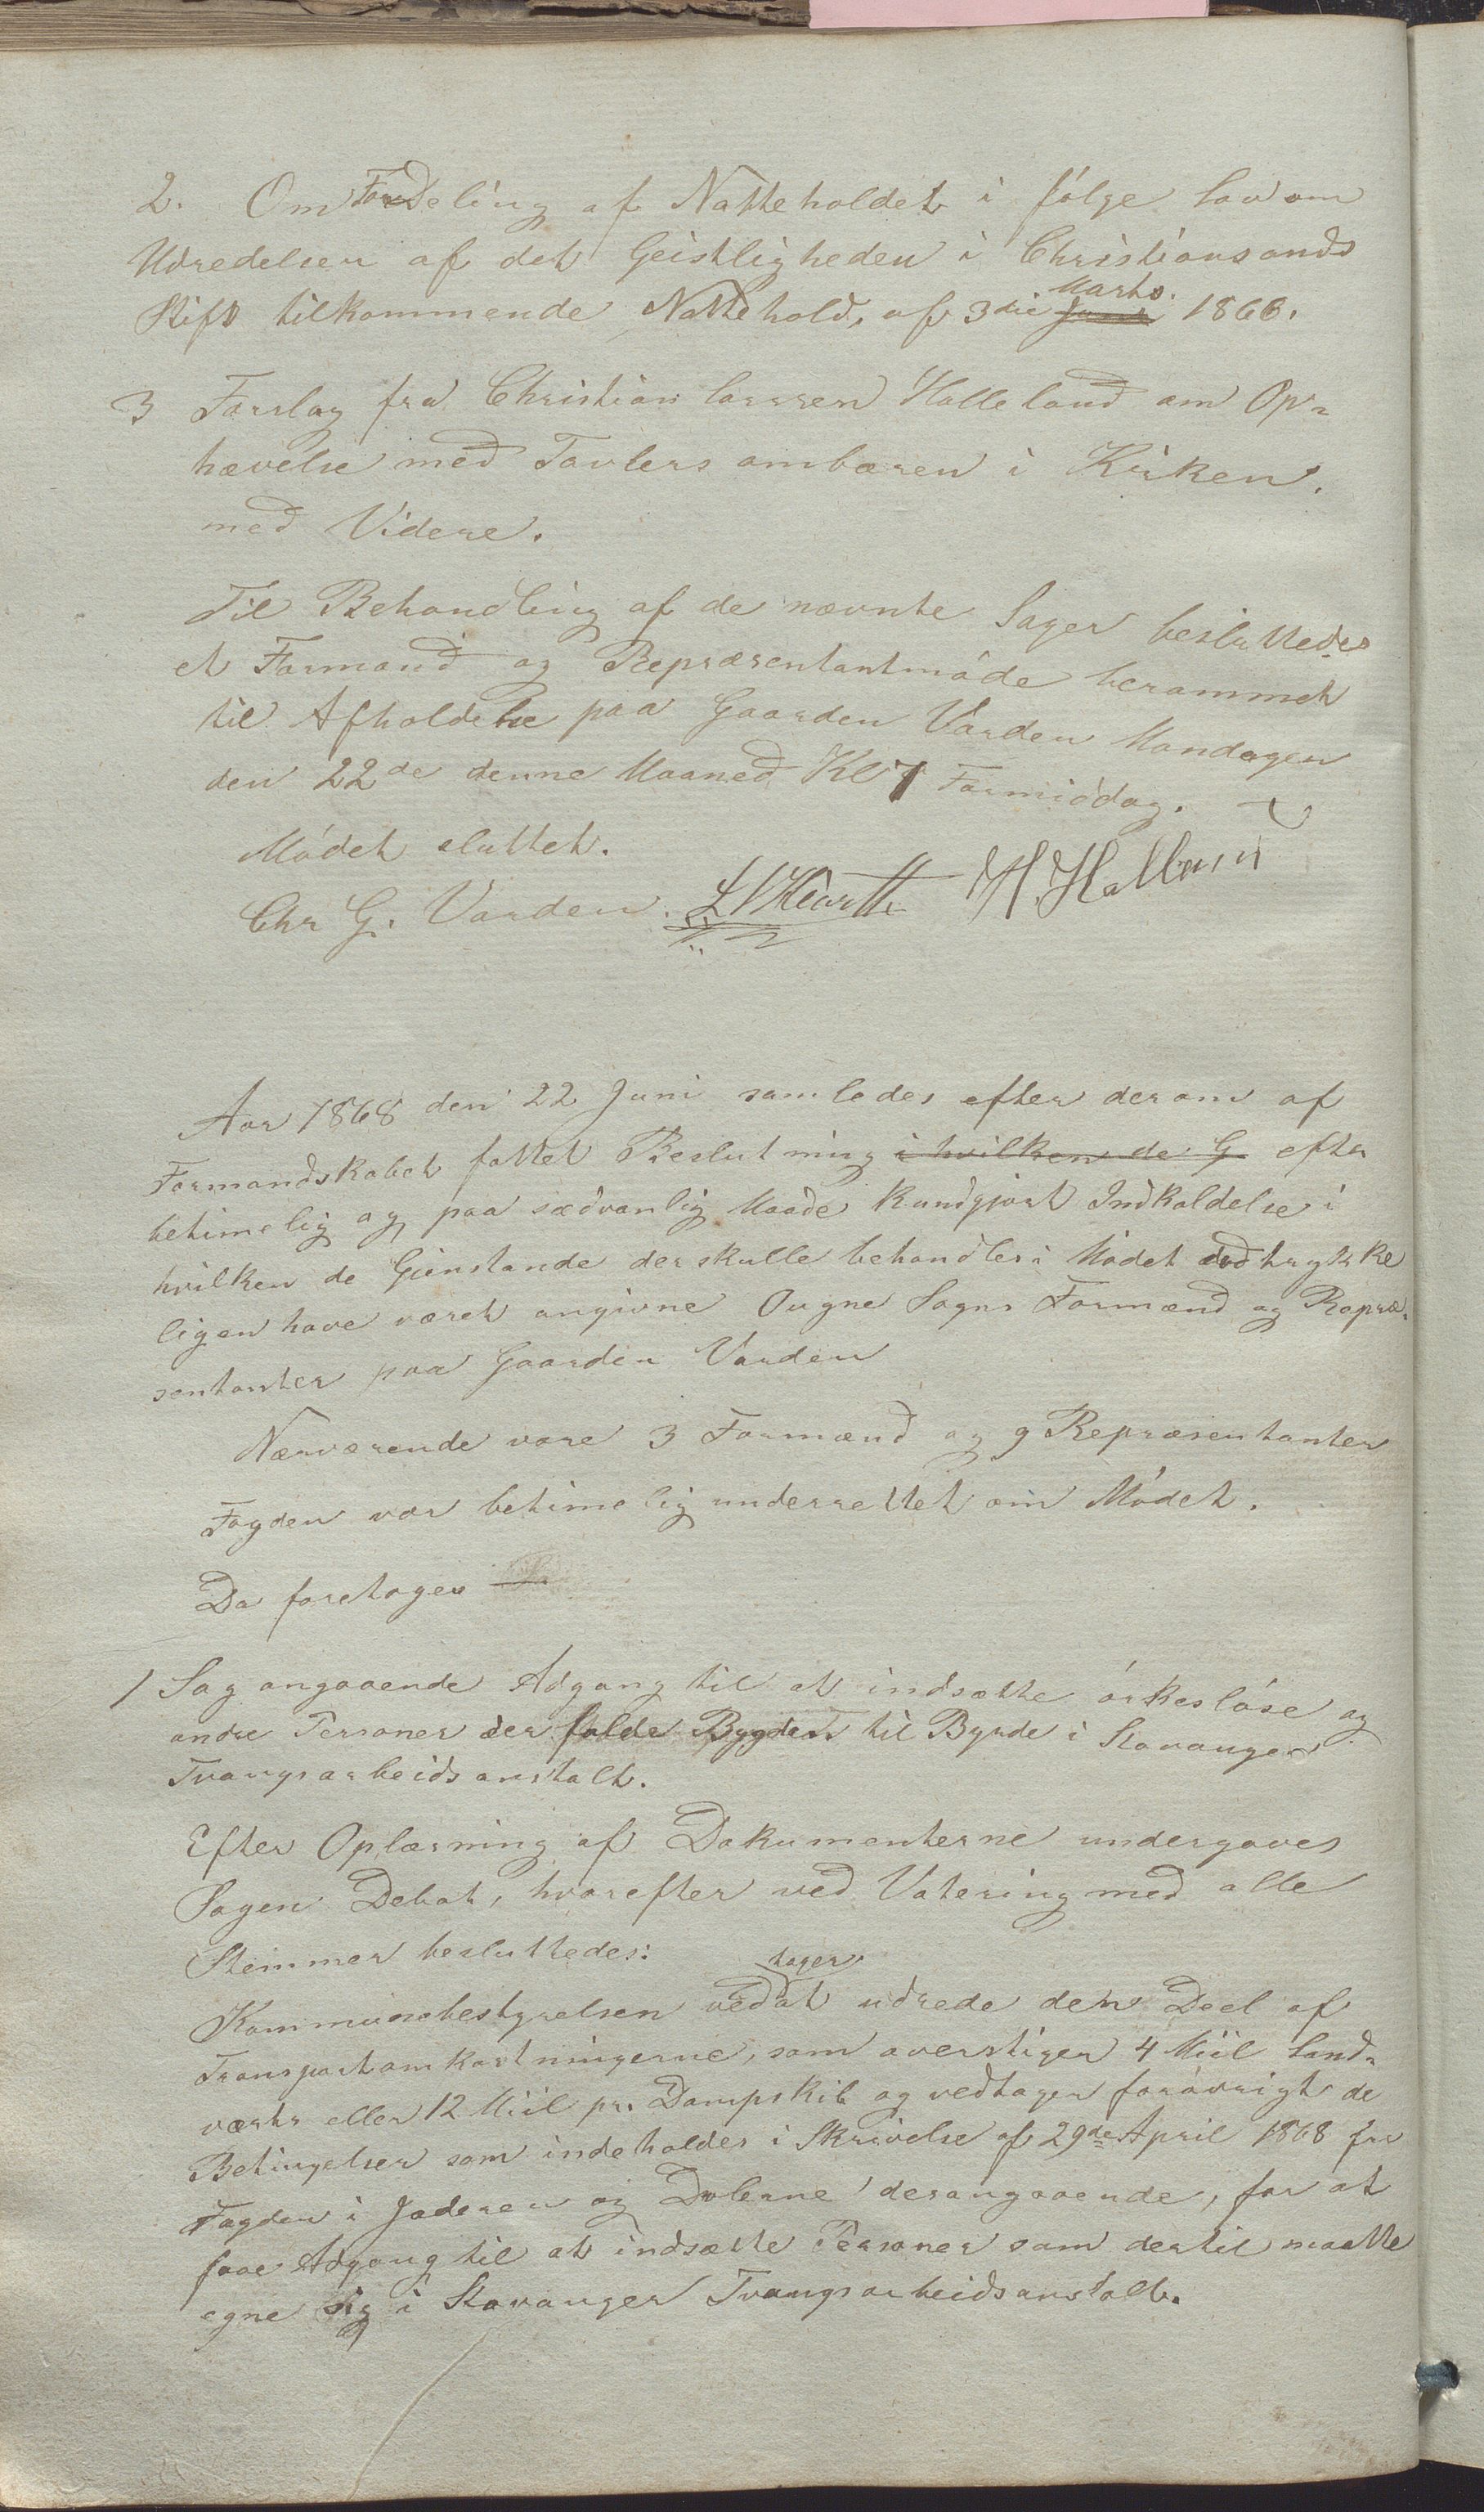 2. Om Fordeling af Natteholdet i følge Lov om
Udredelsen af det Geistligheden i Christiansands
Stift tilkommende Nattehold, af 3die Marts 1866.
3 Forslag fra Christian Larsen Halleland om Op=
hævelse med Tavlers ombæren i Kirken.
med Videre.
Til Behandling af de nævnte Sager besluttedes
et Formand og Repræsentantmøde berammet
til Afholdelse paa Gaarden Varden Mandagen
den 22de denne Maaned Kl 7 Formiddag.
Mødet sluttet.
Chr G. Varden.
Aar 1868 den 22 Juni samledes efter derom af
Formandskabet fattet Beslutning i hvilken de G efter
betimelig og paa sædvanlig Maade kundgjort Indkaldelse i
hvilken de Gjenstande der skulle behandles i Mødet udtrykke
ligen have været angivne Ougne Sogns Formænd og Repræ=
sentanter paa Gaarden Varden
Nærværende vare 3 Formænd og 9 Repræsentanter
Fogden var betimelig underrettet om Mødet.
Da foretoges
1 Sag angaaende Adgang til at indsætte ørkesløse og
andre Personer der falde Bygden til Byrde i Stavanger
Tvangsarbeidsanstalt.
Efter Oplæsning af Dokumenterne undergaves
Sagen Debat, hvorefter ved Votering med alle
Stemmer besluttedes:
Kommunebestyrelsen vedtager at udrede den Deel af
Transportomkostningerne, som overstiger 4 Miil Land=
værts eller 12 Miil pr. Dampskib og vedtager forøvrigt de
Betingelser som indeholdes i Skrivelse af 29de April 1868 fra
Fogden i Jæderen og Dalerne desangaaende, for at
faae Adgang til at indsætte Personer som dertil maatte
egne sig i Stavanger Tvangsarbeidsanstalt.